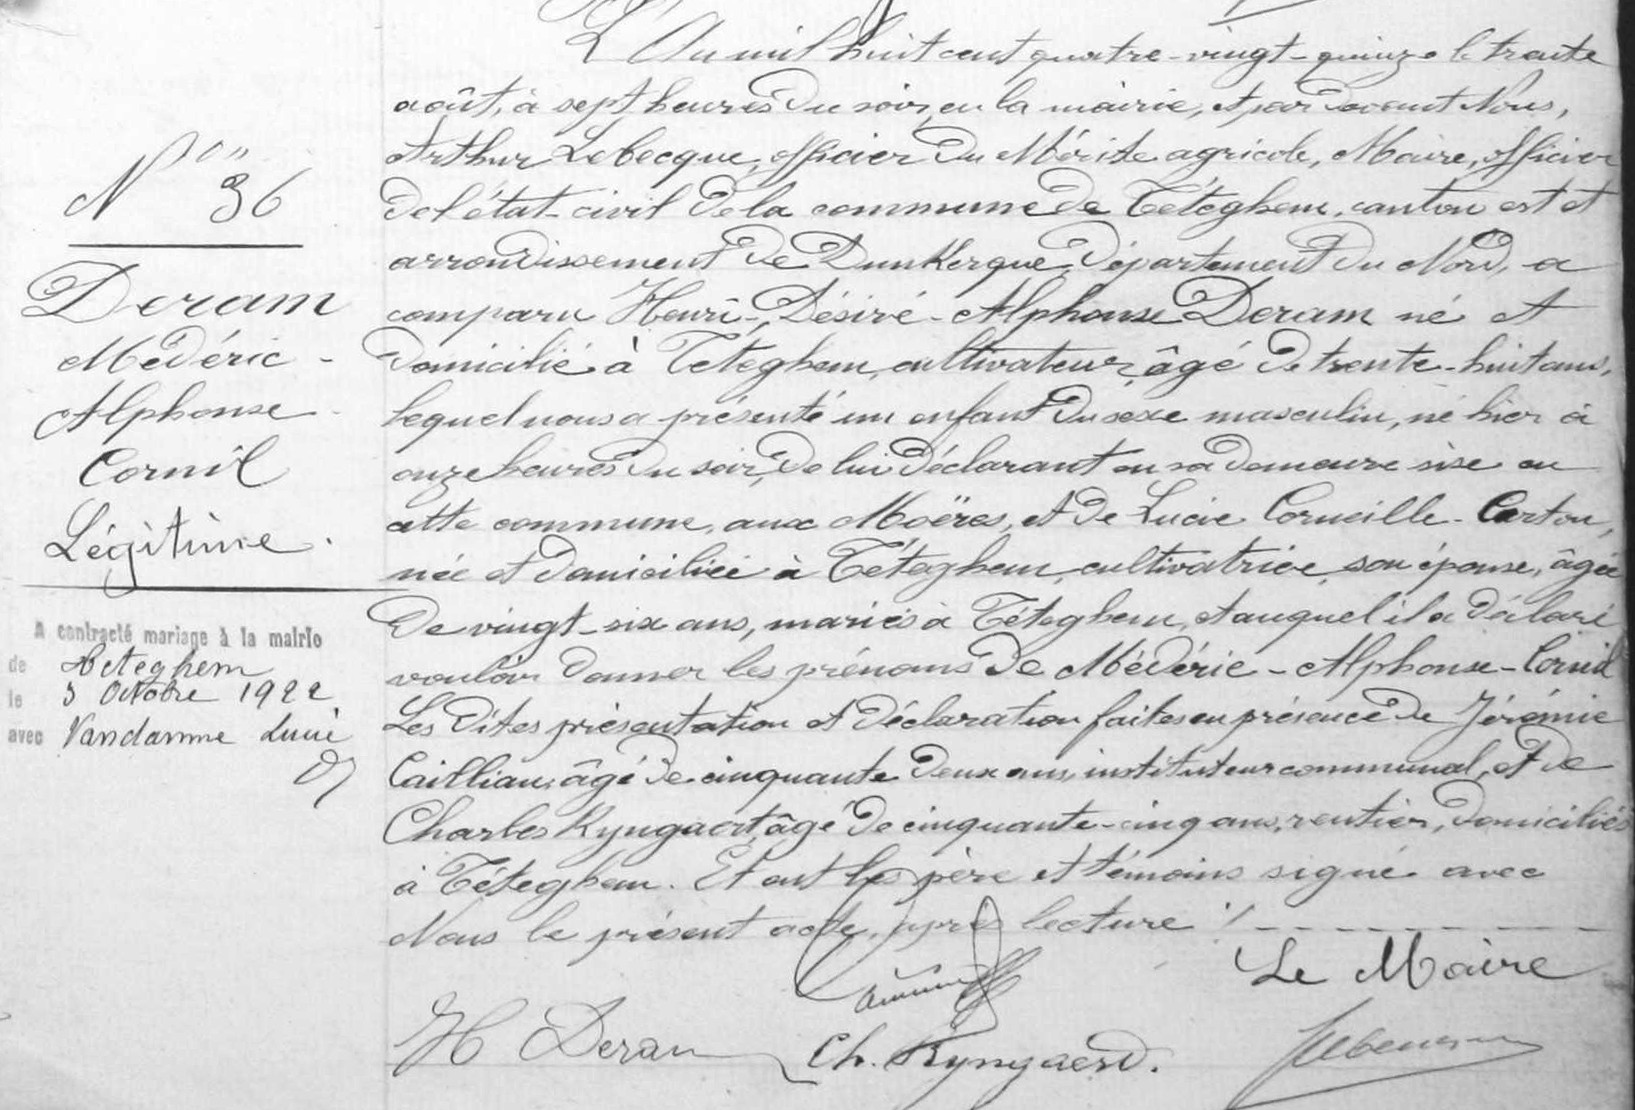 N° 36
Deram
Médéric -
Alphonse -
Cornil
Légitime.
A contracté mariage à la mairie
de Téteghem
le 3 Octobre 1922
avec Vandamme Lucie
L'An mil huit cent quatre-vingt-quinze le trente
août, à sept heures du soir, en la mairie, et par devant Nous,
Arthur Lebecque, officier du Mérite agricole, Maire, officier
de l'état-civil de la commune de Téteghem, canton est et
arrondissement de Dunkerque, Département du Nord, a
comparu Henri-Désiré-Alphonse Deram né et
domicilié à Téteghem, cultivateur, âgé de trente-huit ans,
lequel nous a présenté un enfant du sexe masculin, né hier à
onze heures du soir, de lui déclarant en sa demeure sise en
cette commune, aux Moëres, et de Lucie Corneille Carton,
née et domiciliée à Téteghem, cultivatrice, son épouse, âgée
de vingt-six ans, mariés à Téteghem, et auquel il a déclaré
vouloir donner les prénoms de Médéric-Alphonse-Cornil
Les dites présentation et déclaration faites en présence de Jérémie
Cailliau, âgé de cinquante deux ans, instituteur communal, et de
Charles Ryngaert, âgé de cinquante-cinq ans, rentier, domiciliés
à Téteghem. Et ont les père et témoins signé avec
Nous le présent acte, après lecture ./.
Le Maire
H Deram
Ch. Ryngaerd.